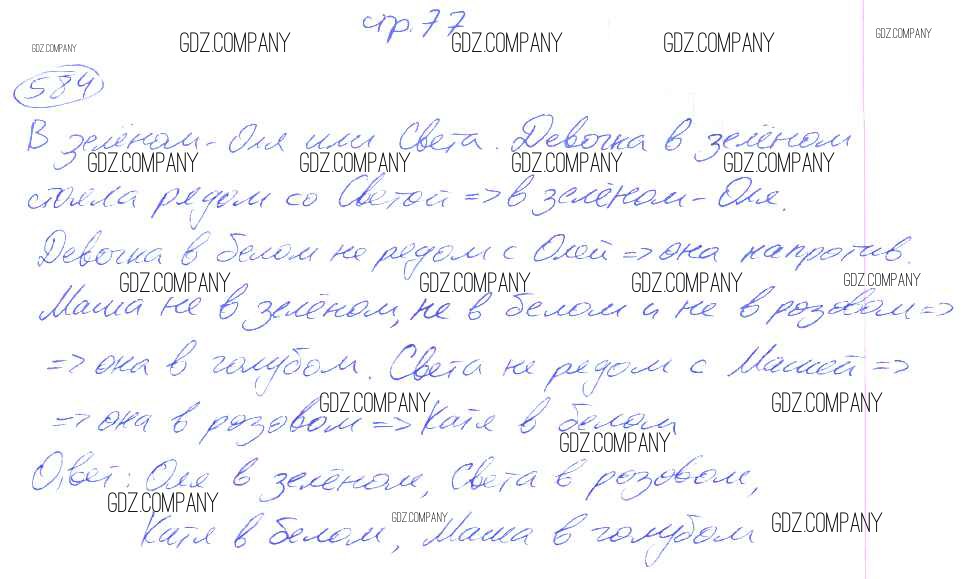 стр. 77
GDZ.COMPANY GDZ.COMPANY GDZ.COMPANY GDZ.COMPANY GDZ.COMPANY
584
В зелёном - Оля или Света. Девочка в зелёном
GDZ.COMPANY GDZ.COMPANY GDZ.COMPANY GDZ.COMPANY
стояла рядом со Светой => в зелёном - Оля.
Девочка в белом не рядом с Олей => она напротив.
GDZ.COMPANY GDZ.COMPANY GDZ.COMPANY GDZ.COMPANY
Маша не в зелёном, не в белом и не в розовом =>
=> она в голубом. Света не рядом с Машей =>
GDZ.COMPANY GDZ.COMPANY
=> она в розовом => Катя в белом
GDZ.COMPANY
Ответ: Оля в зелёном, Света в розовом,
GDZ.COMPANY GDZ.COMPANY GDZ.COMPANY
Катя в белом, Маша в голубом